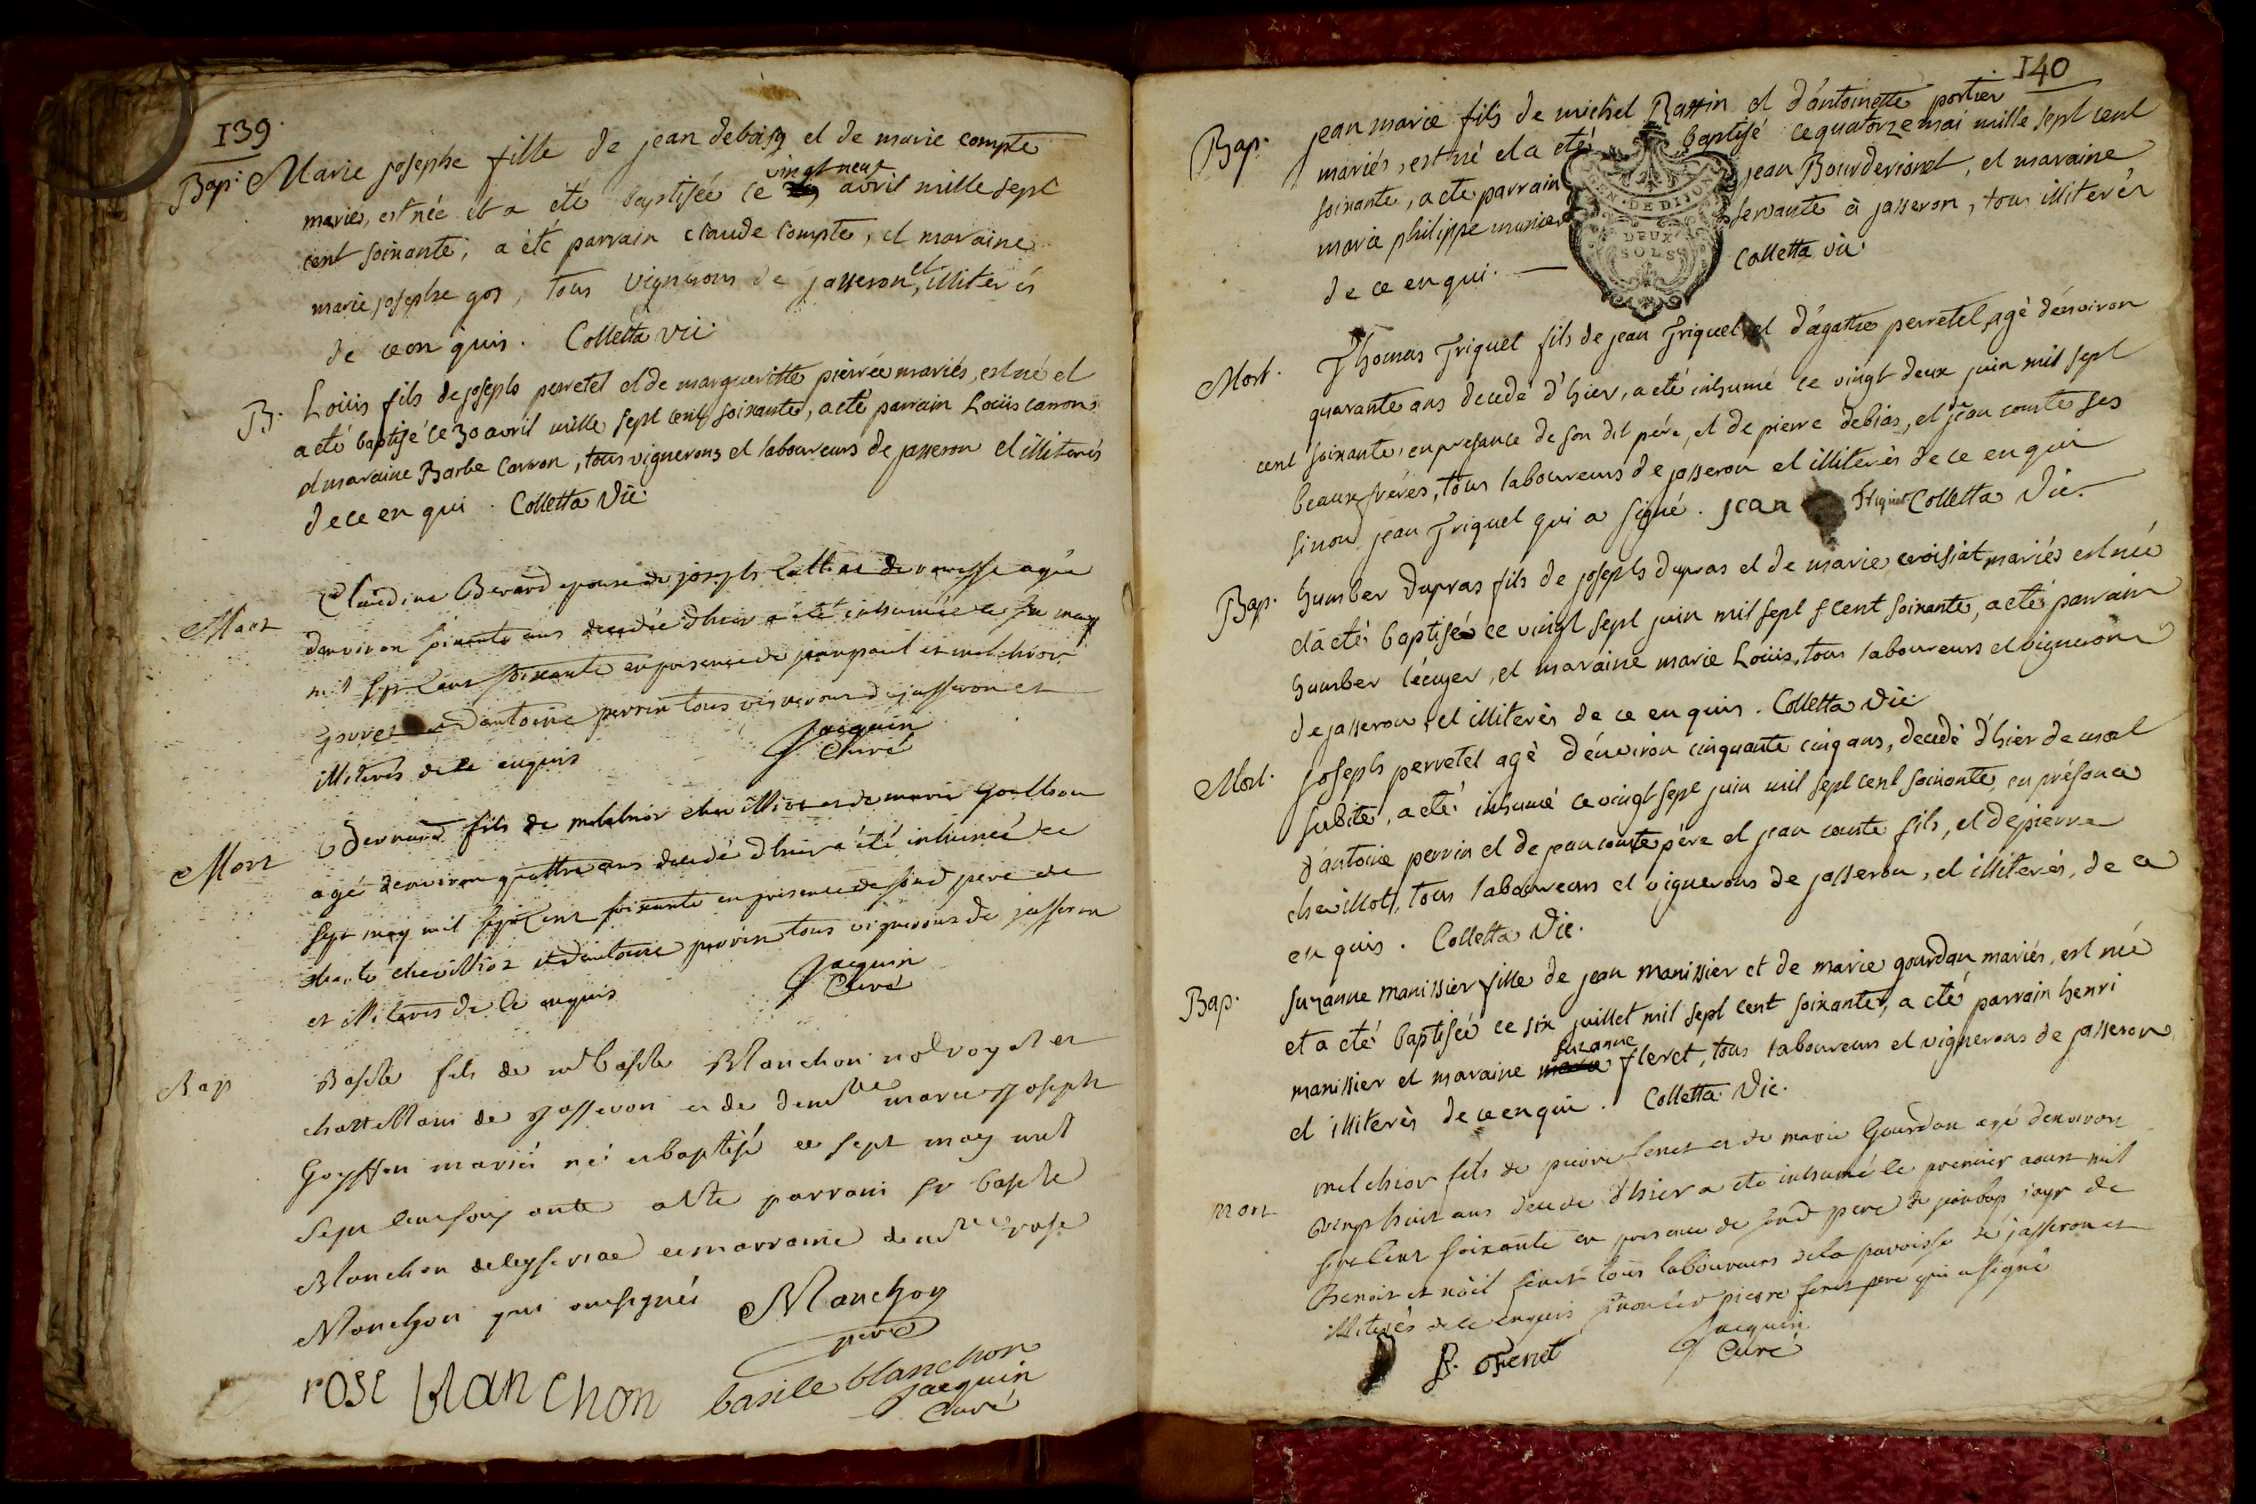 139.
Bap: Marie josephe fille de jean debias et de marie compte
mariés, est née et a été baptisée ce vingt neuf avril mille sept
cent soixante, a été parrain claude compte, et maraine
marie josephe gos, tous vignerons de jasseron, et illiterés
de ce en quis. Colletta vic.
B. Loüis fils de joseph perretel et de margueritte pierrée mariés, est né et
a eté baptisé ce 30 avril mille sept cent soixante, a eté parrain Loüis carron
et maraine Barbe Carron, tous vignerons et laboureurs de jasseron et illiterés
de ce en qui. Colletta Vic.
Mort Claudine Berard epouse de joseph agée
d'environ soixante ans decedée d'hier a été inhumée ce six may
mil sept cent soixante en presence de jean paul et melchior
gouvet et d'antoine perrin tous vignerons de jasseron et
illiterés de ce enquis Jacquin
Curé
Mort Bernard fils de melchior chevillioz et de marie
agé d'environ quattre ans decedé d'hier a été inhumé ce
sept may mil sept cent soixante en presence de sond pere de
chevillioz et d'antoine perrin tous vignerons de jasseron
et illiterés de ce enquis Jacquin
Curé
Bap Basile fils de mr basile Blanchon not royal et
chattellain de Jasseron et de demlle marie Joseph
Goyffon mariés né et baptisé ce sept may mil
sept cent soixante a été parrain sr basile
Blanchon de et marraine demlle rose
Blanchon qui ont signés Blanchon
pere
rose blanchon basile blanchon
Jacquin
Curé
140
Bap. jean marie fils de michel Rassin et d'antoinette portier
mariés, est né et a eté baptisé ce quatorze mai mille sept cent
soixante, a eté parrain jean Bourderionet, et maraine
marie philippe munier servante à jasseron, tous illiterés
de ce en qui. — Colletta vic
GEN. DE DIJON
DEUX
SOLS
Mort. Thomas Friquet fils de jean Friquet et d'agathe perretel, agé d'environ
quarante ans decedé d'hier, a eté inhumé ce vingt deux juin mil sept
cent soixante, en presance de son dit pére, et de pierre debias, et jean comte ses
beaux fréres, tous laboureurs de jasseron et illiterés de ce en qui
sinon jean Friquet qui a signé. jean Friquet Colletta Vic.
Bap. humber dupras fils de joseph dupras et de marie croisiat mariés est née
et a eté baptisé ce vingt sept juin mil sept cent soixante, a eté parrain
humber lécuyer, et maraine marie Loüis, tous laboureurs et vignerons
de jasseron, et illiterés de ce en quis. Colletta Vic
Mort. joseph perretel agé d'environ cinquante cinq ans, decedé d'hier de mort
subite, a eté inhumé ce vingt sept juin mil sept cent soixante, en présence
d'antoine perrin et de jean comte pére et jean comte fils, et de pierre
chevillot, tous laboureurs et vignerons de jasseron, et illiterés, de ce
en quis. Colletta Vic.
Bap. suzanne manissier fille de jean manissier et de marie gourdan mariés, est née
et a eté baptiséé ce six juillet mil sept cent soixante, a eté parrain henri
manissier et maraine suzanne fleret, tous laboureurs et vignerons de jasseron
et illiterés de ce en qui. Colletta Vic.
mort melchior fils de pierre feret et de marie Gourdan agé denviron
vingt huit ans decedé d'hier a eté inhumé le premier aoust mil
sept cent soixante en presence de sond pere de jayr de
Benoit et noël feret tous laboureurs de la paroisse de jasseron et
illiterés de ce enquis sinon led pierre feret pere qui a signé
P. Feret Jacquin
Curé